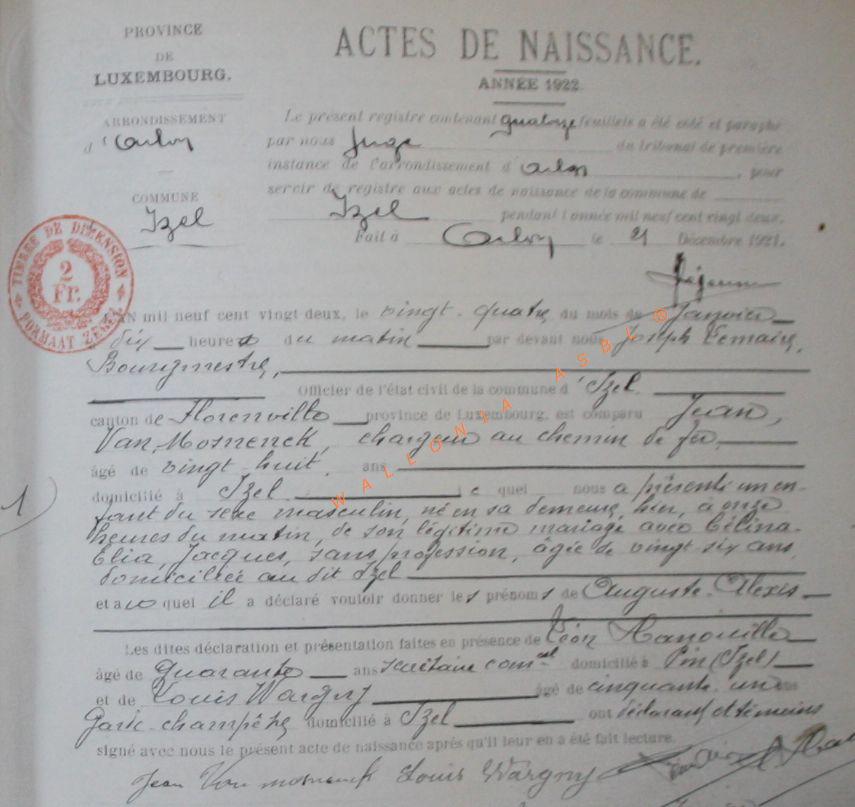 PROVINCE
DE
LUXEMBOURG.
ARRONDISSEMENT
d'Arlon
COMMUNE
Izel
TIMBRE DE DIMENSION
2
Fr.
FORMAAT ZEGEL
ACTES DE NAISSANCE.
ANNÉE 1922.
Le présent registre contenant quatorze feuillets a été coté et paraphé
par nous Juge du tribunal de première
instance de l'arrondissement d'Arlon, pour
servir de registre aux actes de naissance de la commune de
Izel pendant l'année mil neuf cent vingt deux.
Fait à Arlon le 21 Décembre 1921.
Lejeune
1
L'AN mil neuf cent vingt deux, le vingt-quatre du mois de Janvier
dix heures du matin par devant nous Joseph Lemaire,
Bourgmestre,
Officier de l'état civil de la commune d'Izel
canton de Florenville province de Luxembourg, est comparu Jean,
Van Mosnenck, chargeur au chemin de fer,
âgé de vingt huit. ans
domicilié à Izel lequel nous a présenté un en-
fant du sexe masculin, né en sa demeure, hier, à onze
heures du matin, de son légitime mariage avec Célina-
Elia, Jacques, sans profession, âgée de vingt six ans,
domiciliée au dit Izel
et auquel il a déclaré vouloir donner les prénoms de Auguste-Alexis
Les dites déclaration et présentation faites en présence de Léon
âgé de quarante ans secrétaire comal domicilié à Pin (Izel)
et de Louis Wargny âgé de cinquante un ans
Garde-champêtre domicilié à Izel ont déclarant et témoins
signé avec nous le présent acte de naissance après qu'il leur en a été fait lecture.
Jean Van mosnenck Louis Wargny
WALLONIA ASBL ®